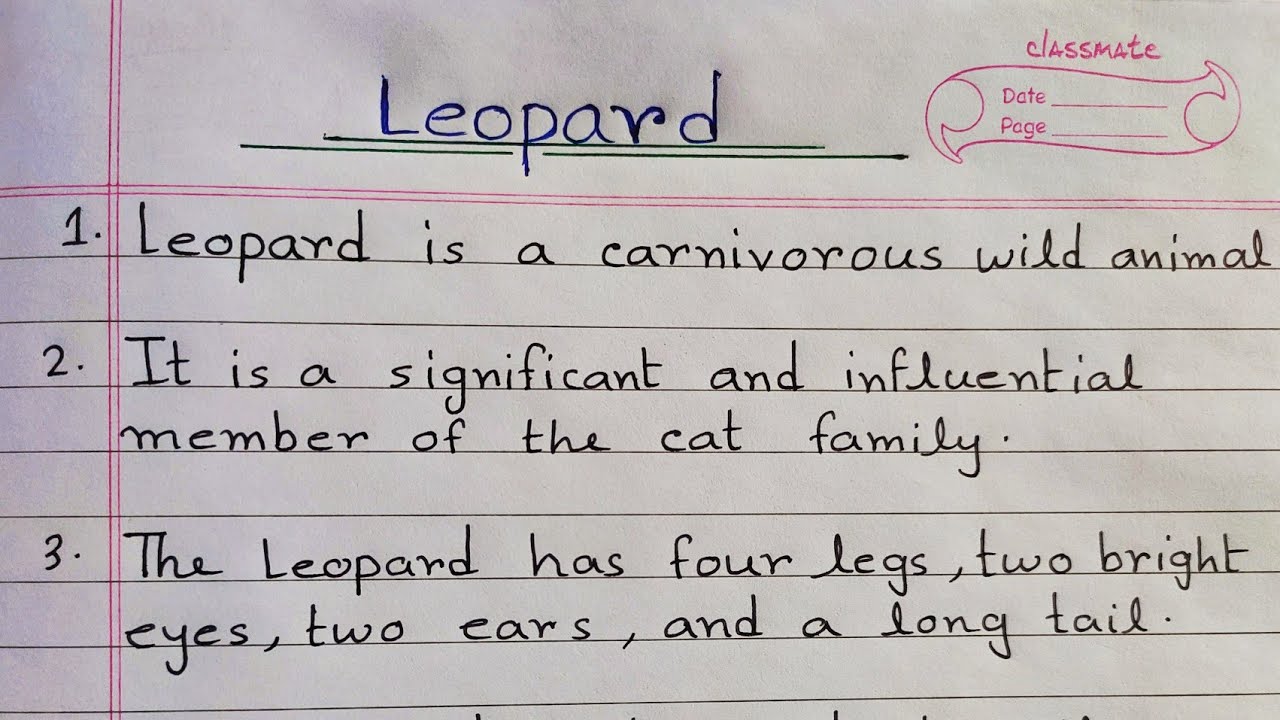 classmate
Date
Page
Leopard
1. Leopard is a carnivorous wild animal
2. It is a significant and influential
member of the cat family.
3. The Leopard has four legs, two bright
eyes, two ears, and a long tail.